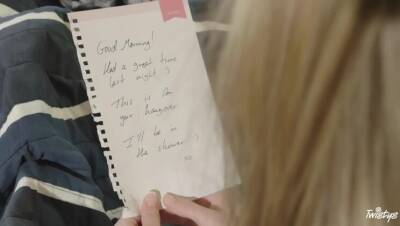 Good Morning!
Had a great time
last night :)
This is for
your hangover
I'll be in
the shower :)
xo
Twistys